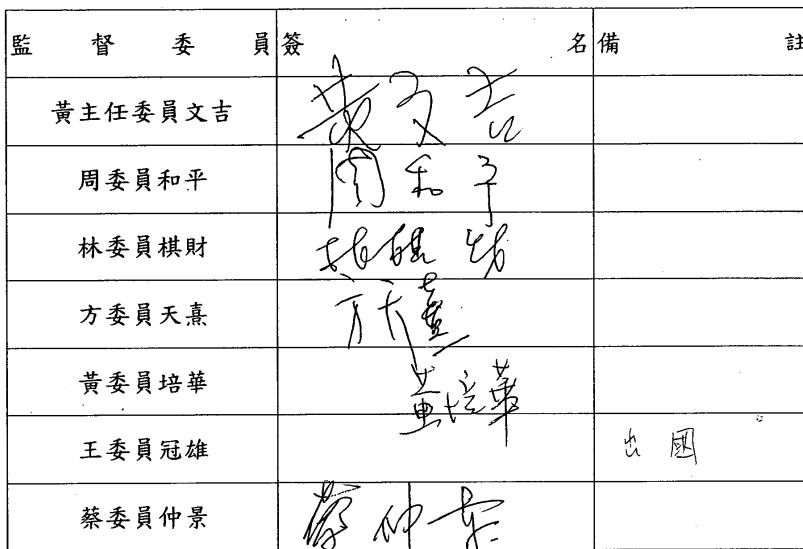 監督委員 簽名 備註
黃主任委員文吉 黃文吉
周委員和平 周和平
林委員棋財 林棋財
方委員天熹 方天熹
黃委員培華 黃培華
王委員冠雄 出國
蔡委員仲景 蔡仲景